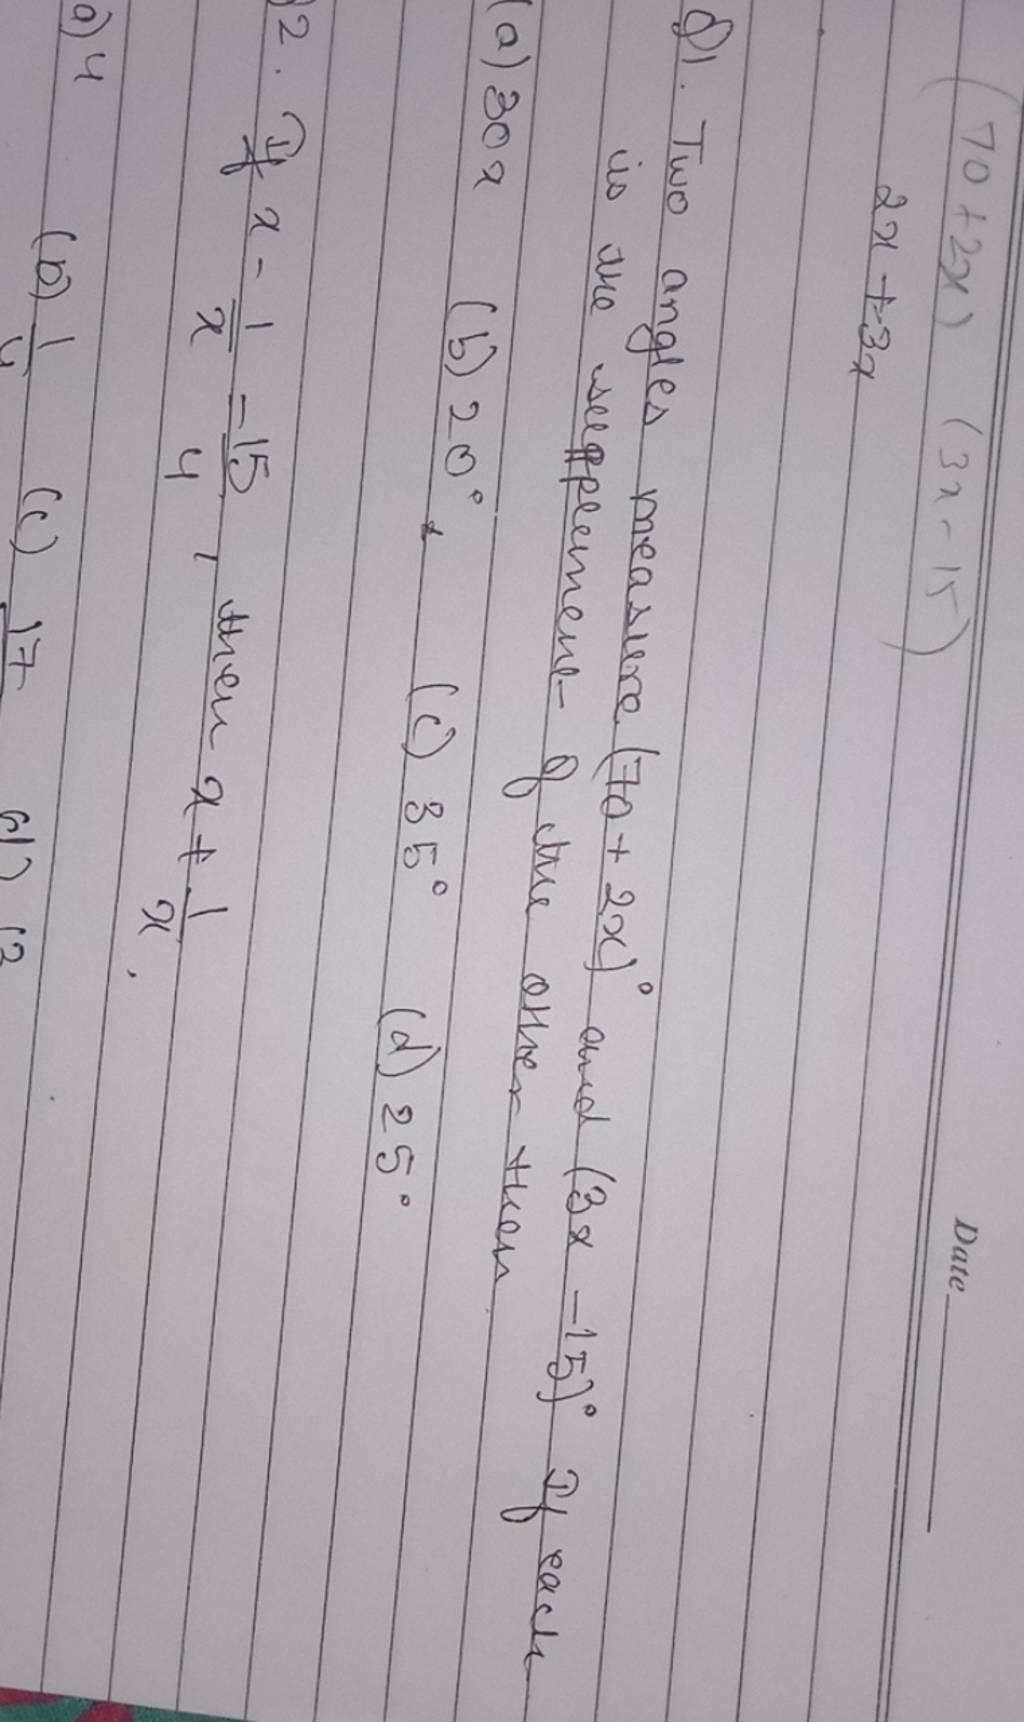 Date
(70+2x) (3x-15)
2x+3x
Q1. Two angles measure (70+2x)° and (3x-15)° If each
is the supplement of the other then
(a) 30x (b) 20° (c) 35° (d) 25°
2. If x - 1/x = 15/4, then x + 1/x.
a) 4 (b) 1/4 (c) 17 d) 13